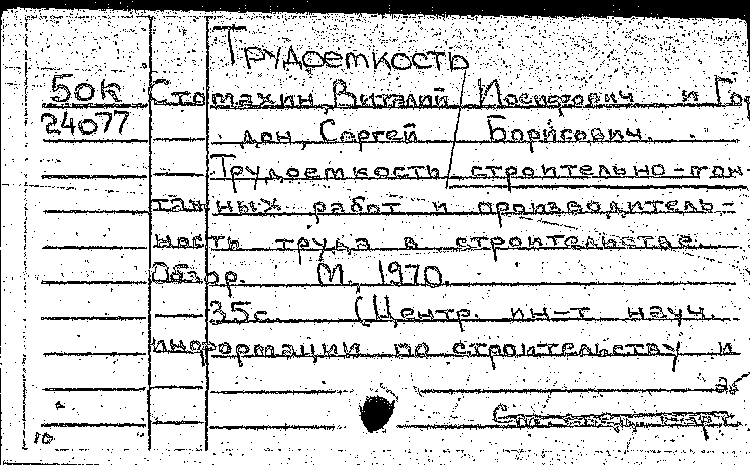 Трудоемкость
50к Стомахин, Виталий Иосифович и Гор
24077 дон, Сергей Борисович.
Трудоемкость строительно-мон-
тажных работ и производитель-
ность труда в строительстве.
Обзор. М, 1970.
35с. (Центр. ин-т науч.
информации по строительству и
См.
10